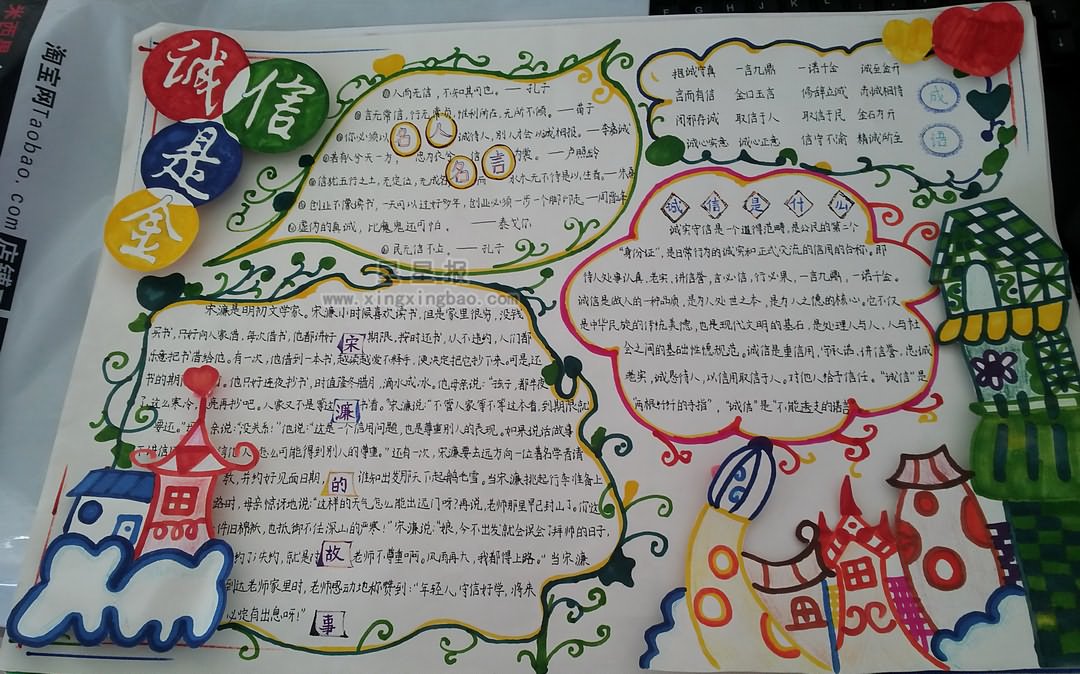 诚
信
是
金
人而无信，不知其可也。——孔子
言无常信，行无常贞，惟利所在，无所不倾。——荀子
你必须以诚待人，别人才会以诚相报。——李嘉诚
若有兮天一方，忠为衣兮信为裳。——卢照龄
信犹五行之土，无定位，无成名，而水火无不待是以生者。——朱熹
创业不像读书，一天可以过计多年，创业必须一步一个脚印走
虚伪的真诚，比魔鬼还可怕。——泰戈尔
民无信不立。——孔子
名人名言
抱诚守真 一言九鼎 一诺千金 诚至金开
言而有信 金口玉言 修辞立诚 赤诚相待
闭邪存诚 取信于人 取信于民 金石为开
诚心实意 诚心正意 信守不渝 精诚所至
成
语
诚信是什么
诚实守信是一个道德范畴，是公民的第二个
“身份证”，是日常行为的诚实和正式交流的信用的合称。即
待人处事认真、老实、讲信誉，言必信，行必果，一言九鼎，一诺千金。
诚信是做人的一种品质，是为人处世之本，是为人之德的核心。它不仅
是中华民族的传统美德，也是现代文明的基石，是处理人与人、人与社
会之间的基础性德规范。诚信是重信用、守承诺、讲信誉、忠诚
老实，诚恳待人，以信用取信于人。对他人给予信任。“诚信”是
“两根纤纤的手指”，“诚信”是“不能透支的诺言
宋濂的故事
宋濂是明初文学家。宋濂小时候喜欢读书，但是家里很穷，没钱
买书，只好向人家借，每次借书，他都讲好期限，按时还书，从不违约，人们都
乐意把书借给他。有一次，他借到一本书，越读越爱不释手，便决定把它抄下来。可是还
书的期限他只好连夜抄书。时值隆冬腊月，滴水成冰。他母亲说：“孩子，都半夜
了，这么寒冷，天亮再抄吧。人家又不是等这书看。”宋濂说：“不管人家等不等这本看，到期限就
要还。”母亲说：“没关系！”他说：“这是一个信用问题，也是尊重别人的表现。如果说话做事
不讲信用，失信于人，怎么可能得到别人的尊重。”还有一次，宋濂要去远方向一位著名学者请
教，并约好见面日期，谁知出发那天下起鹅毛雪。当宋濂挑起行李准备上
路时，母亲惊讶地说：“这样的天气怎么能出远门呀？再说，老师那里早已封山了。你这
件旧棉袄，也抵御不住深山的严寒！”宋濂说：“娘，今不出发就会误会了拜师的日子，
约了；失约，就是对老师不尊重啊。风雨再大，我都得上路。”当宋濂
到达老师家里时，老师感动地称赞到：“年轻人，守信好学，将来
必定有出息呀！”
星星报
www.xingxingbao.com
淘宝网Taobao.com